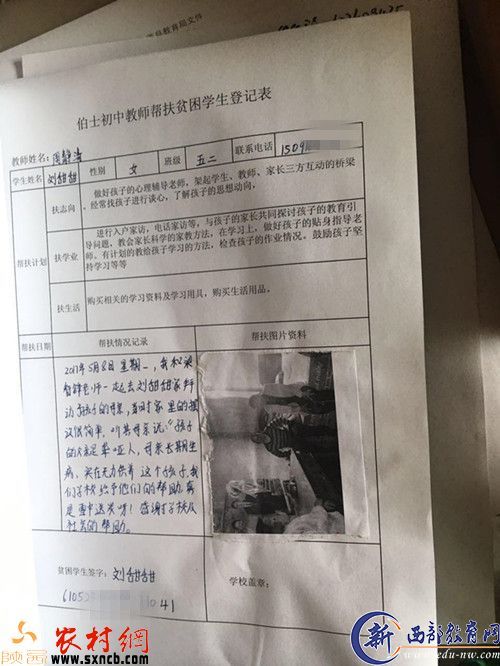 伯士初中教师帮扶贫困学生登记表
教师姓名: 周静涛
学生姓名 刘甜甜 性别 女 班级 五二 联系电话 1509
帮扶计划
扶志向
做好孩子的心理辅导老师,架起学生、教师、家长三方互动的桥梁
,经常找孩子进行谈心,了解孩子的思想动向,
扶学业
进行入户家访,电话家访等,与孩子的家长共同探讨孩子的教育引
导问题,教会家长科学的家教方法,在学习上,做好孩子的贴身指导老
师。有计划的教给孩子学习的方法,检查孩子的作业情况。鼓励孩子坚
持学习等等
扶生活
购买相关的学习资料及学习用具,购买生活用品。
帮扶日期 帮扶情况记录 帮扶图片资料
2017年5月8日 星期一,我和梁
老师一起去刘甜甜家
孩子的母亲,
简单,听其母亲说:“孩子
的父亲是聋哑人,母亲长期生
病,实在无力供养这个孩子,我
们学校给予他们的帮助真
是雪中送炭呀!感谢学校及
社会的帮助。
贫困学生签字: 刘甜甜
6105 041
学校盖章:
陕荀
农村網
www.sxncb.com
新 西部教育网
www.edu-nw.com